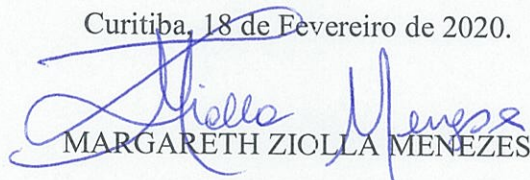 Curitiba, 18 de Fevereiro de 2020.
Ziolla Menezes
MARGARETH ZIOLLA MENEZES